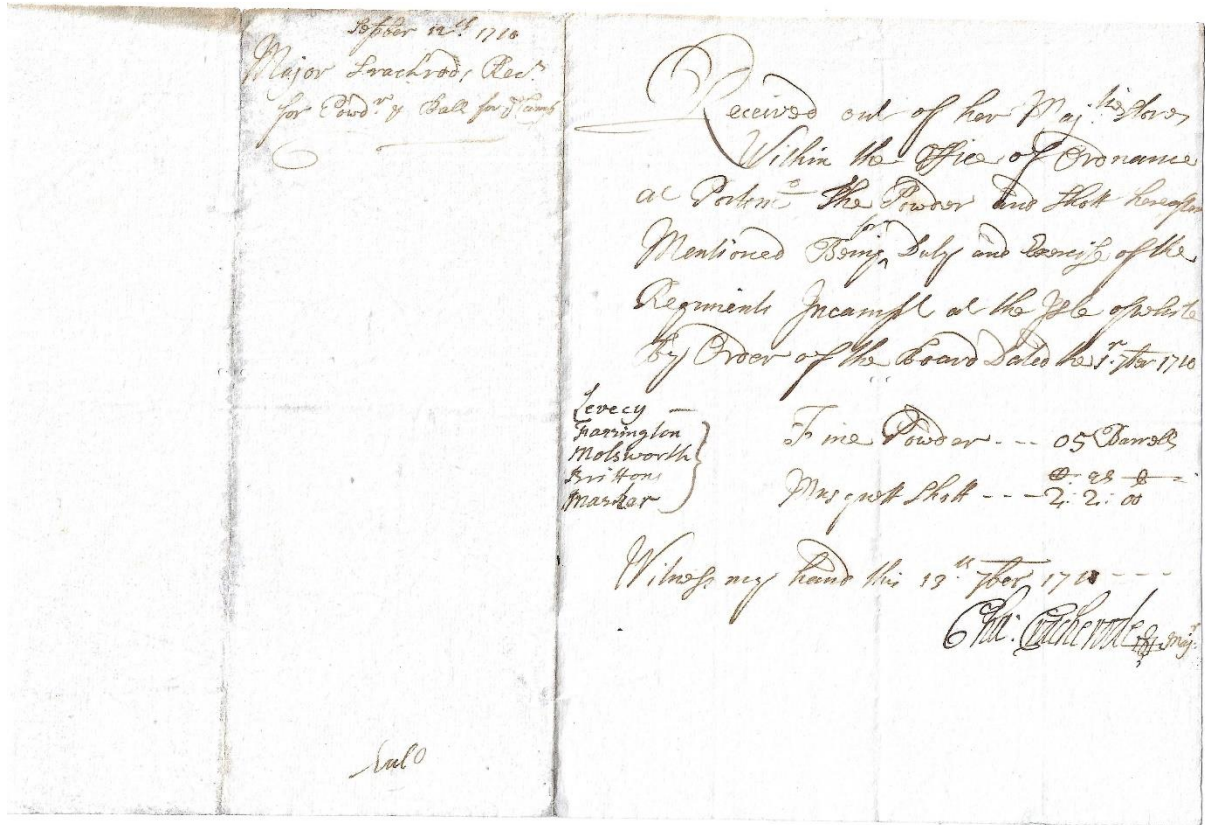 Sepber 12th 1710
Major Crachrod, Recr
for Powdr & Ball for ye Camp
Received out of her Majties Stores
Within the Office of Ordnance
at Portsmo The Powder and Shott hereafter
Mentioned Being for Duly and Exercise of the
Regiments Incampt at the Isle of white
By Order of the Board Dated the 1r 7ber 1710
Levecy
Farrington
Molsworth
Britton
Marker
Fine Powder --- 05 Barrells
C: qs: l
Musquett Shott --- 2: 2: 00
Witness my hand this 12th 7ber 1710 ---
Cha: Cracherode Majr